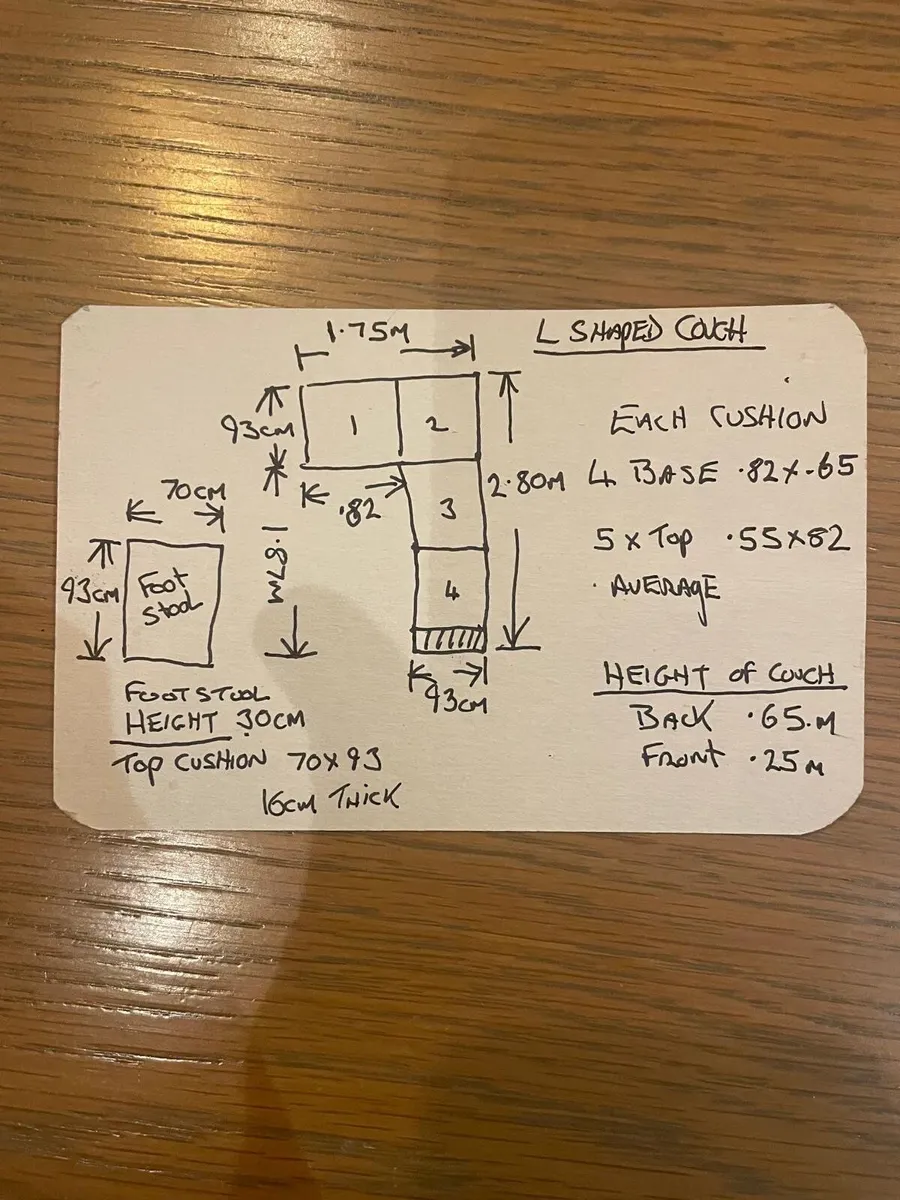 1.75M
L SHAPED COUCH
93CM
1
2
EACH CUSHION
70CM
.82
3
2.80M
4 BASE .82X.65
1.87M
5 x TOP .55X82
93CM
FOOT
STOOL
4
. AVERAGE
93CM
HEIGHT OF COUCH
FOOTSTOOL
HEIGHT 30CM
BACK .65.M
TOP CUSHION 70X93
FRONT .25M
16CM THICK